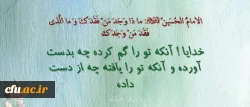 الامام الحسین: ما ذا وَجَدَ مَنْ فَقَدَكَ وَ مَا الَّذى
فَقَدَ مَنْ وَجَدَكَ
خدایا ! آنکه تو را گم کرده چه بدست
آورده و آنکه تو را یافته چه از دست
داده
cfu.ac.ir